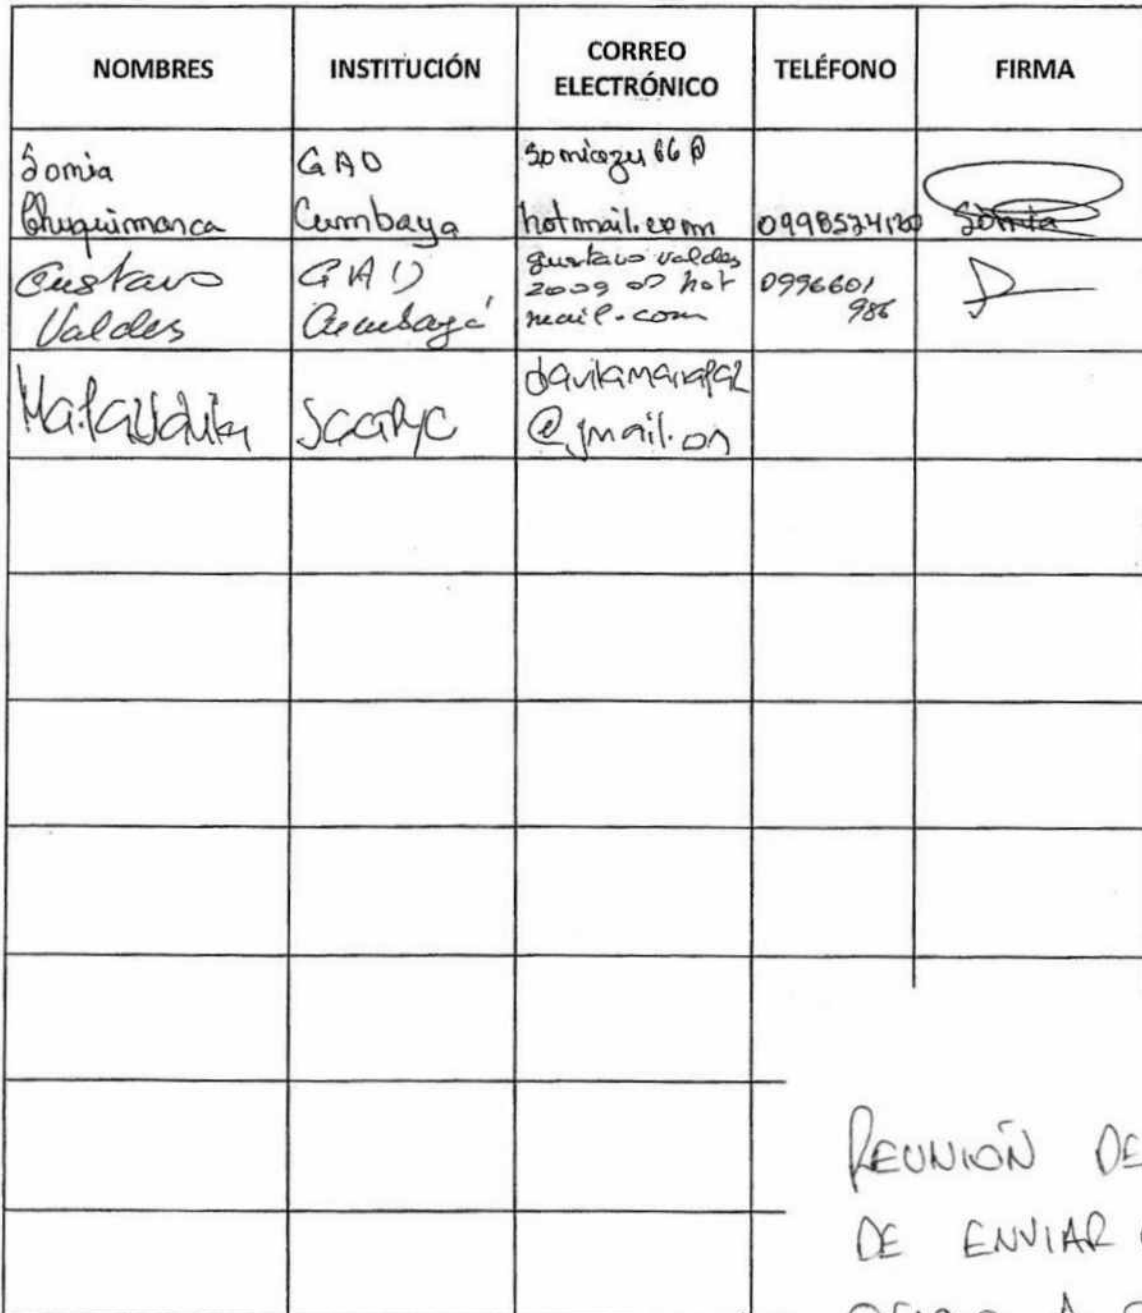 NOMBRES
INSTITUCIÓN
CORREO
ELECTRÓNICO
TELÉFONO
FIRMA
Sonia
Chuquimarca
GAD
Cumbaya
soniazu66@
hotmail.com
0998524120
Sonia
Gustavo
Valdes
GAD
Cumbayá
gustavo valdes
2009 @ hot
mail.com
0996601
986
davilamariapaz
@gmail.on
REUNIÓN DE
DE ENVIAR